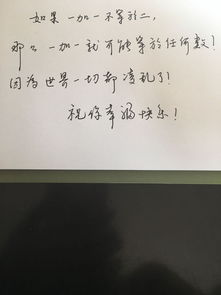 如果一加一不等於二，
那么一加一就可能等於任何數！
因為世界一切都凌亂了！
祝你幸福快乐！